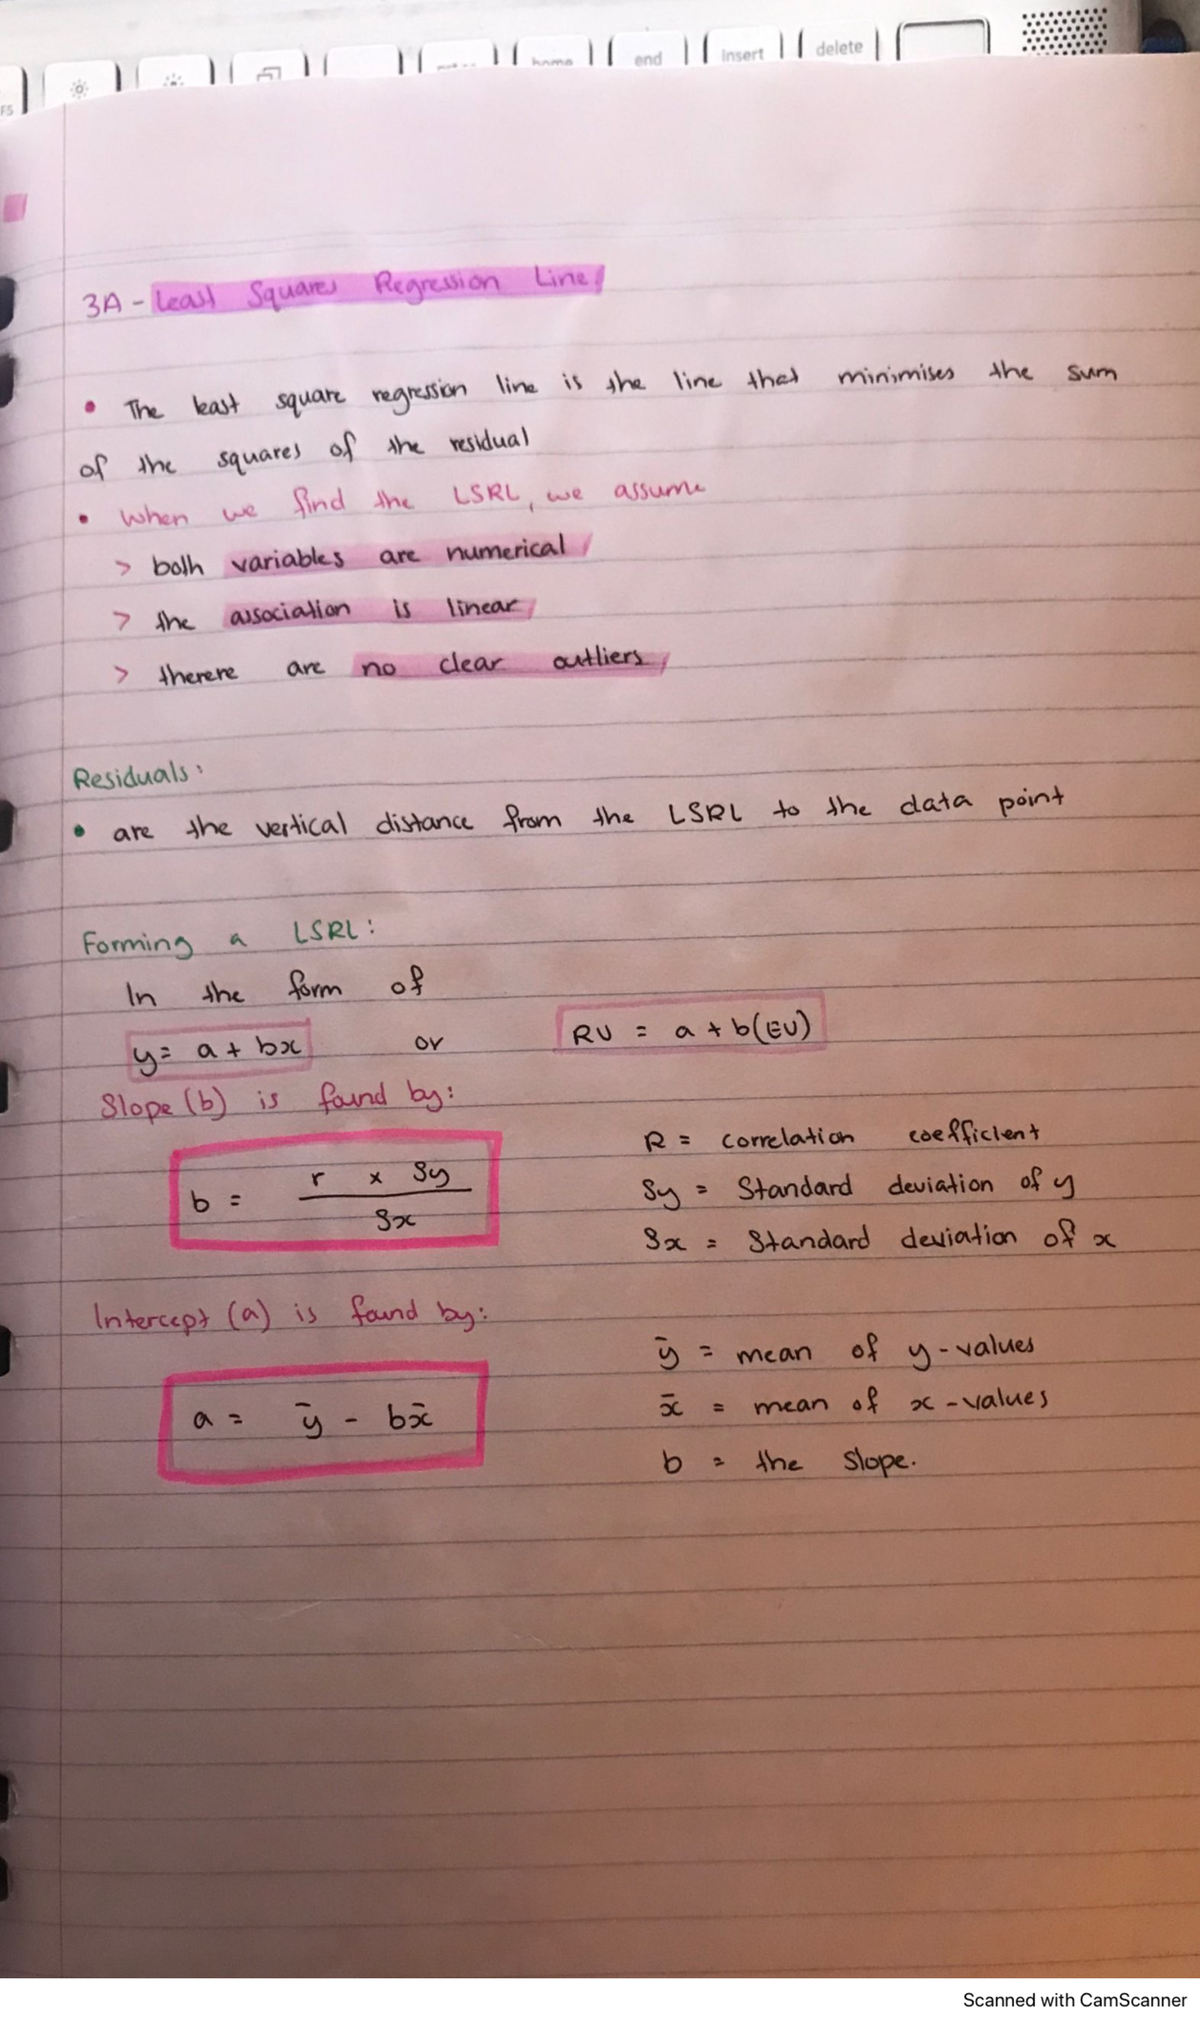 F5
home
end
insert
delete
3A - Least Squares Regression Line
• The least square regression line is the line that minimises the sum
of the squares of the residual
• When we find the LSRL, we assume
> both variables are numerical
> the association is linear
> therere are no clear outliers
Residuals:
• are the vertical distance from the LSRL to the data point
Forming a LSRL:
In the form of
y = a + bx or RV = a + b(EV)
Slope (b) is found by:
b = r x Sy / Sx
R = correlation coefficient
Sy = Standard deviation of y
Sx = Standard deviation of x
Intercept (a) is found by:
a = ȳ - bx̄
ȳ = mean of y-values
x̄ = mean of x-values
b = the slope.
Scanned with CamScanner